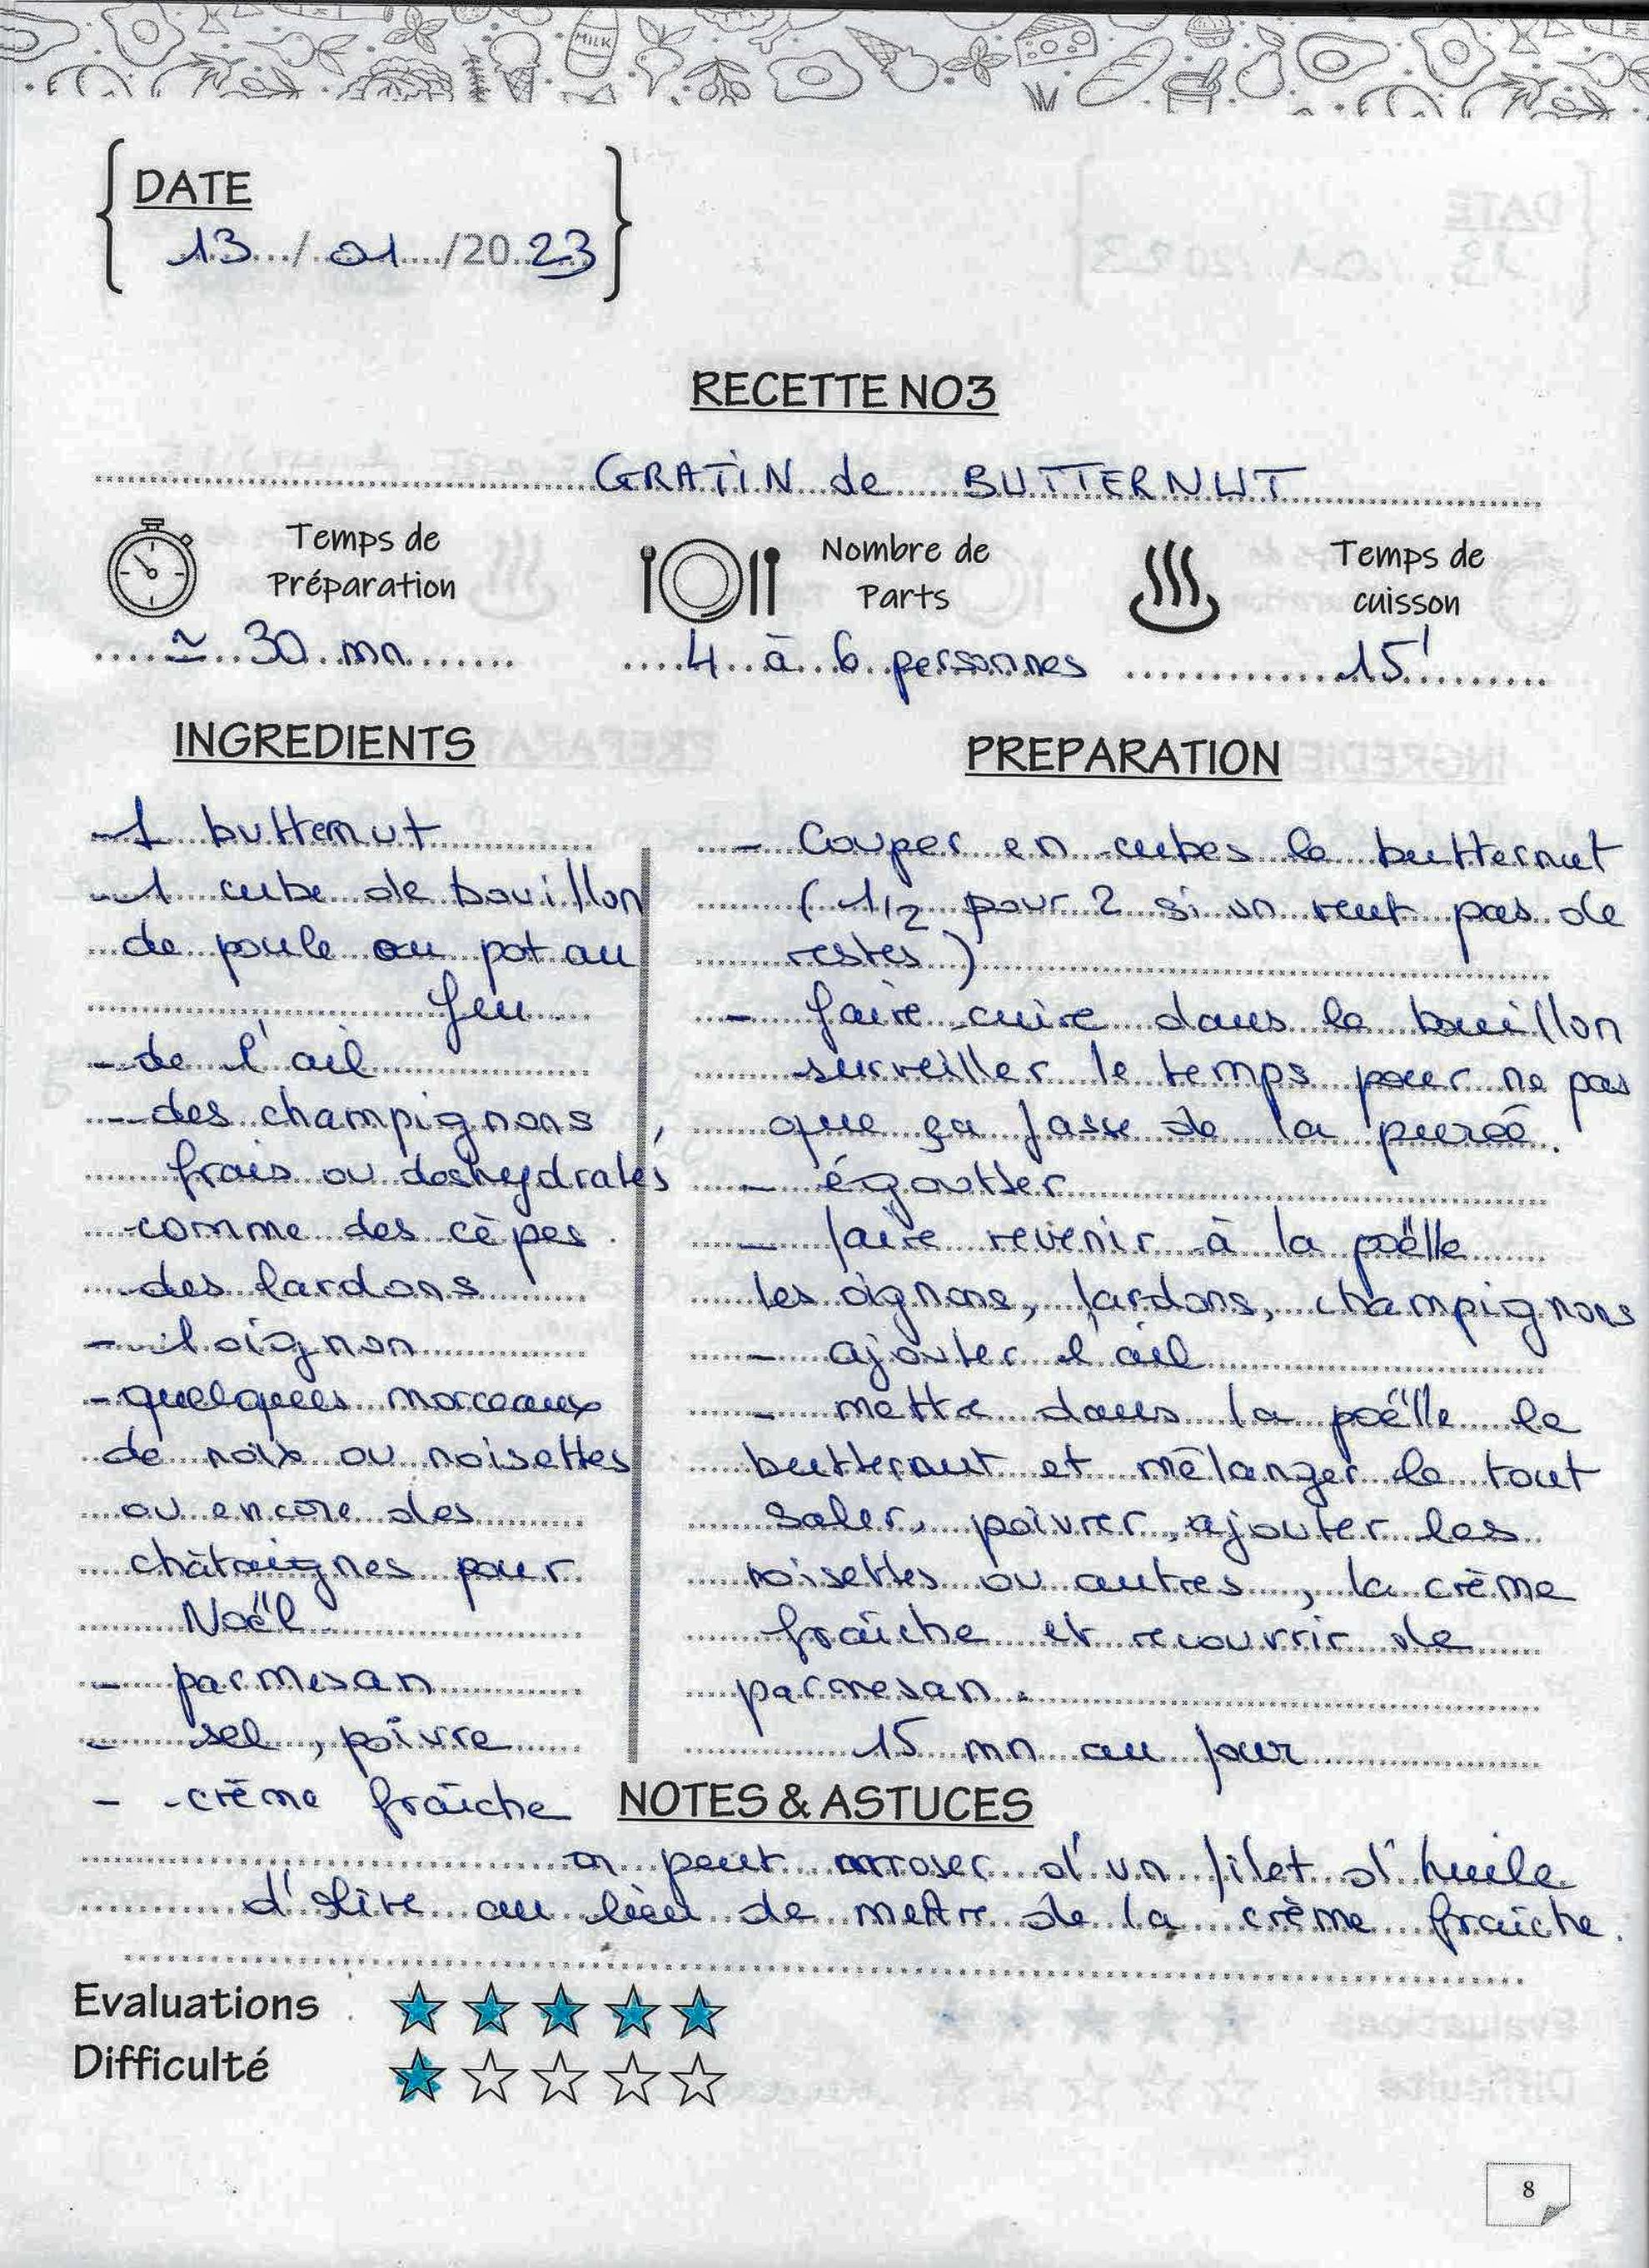 MILK
DATE
13/01/2023
RECETTE NO3
GRATIN de BUTTERNUT
Temps de
Préparation
≃ 30 mn
Nombre de
Parts
4 à 6 personnes
Temps de
cuisson
15'
INGREDIENTS
- 1 butternut
- 1 cube de bouillon
de poule ou pot au
feu
- de l'ail
- des champignons
frais ou deshydratés
comme des cèpes.
- des lardons
- 1 oignon
- quelques morceaux
de noix ou noisettes
ou encore des
châtaignes pour
Noël.
- parmesan
- sel, poivre
- crème fraîche
PREPARATION
- Couper en cubes le butternut
( 1/2 pour 2 si on veut pas de
restes )
- faire cuire dans le bouillon
surveiller le temps pour ne pas
que ça fasse de la purée.
- égoutter
- faire revenir à la poëlle
les oignons, lardons, champignons
- ajouter l'ail
- mettre dans la poëlle le
butternut et mélanger le tout
saler, poivrer, ajouter les
noisettes ou autres, la crème
fraîche et recouvrir de
parmesan.
15 mn au four
NOTES & ASTUCES
on peut arroser d'un filet d'huile
d'olive au lieu de mettre de la crème fraîche.
Evaluations
Difficulté
8